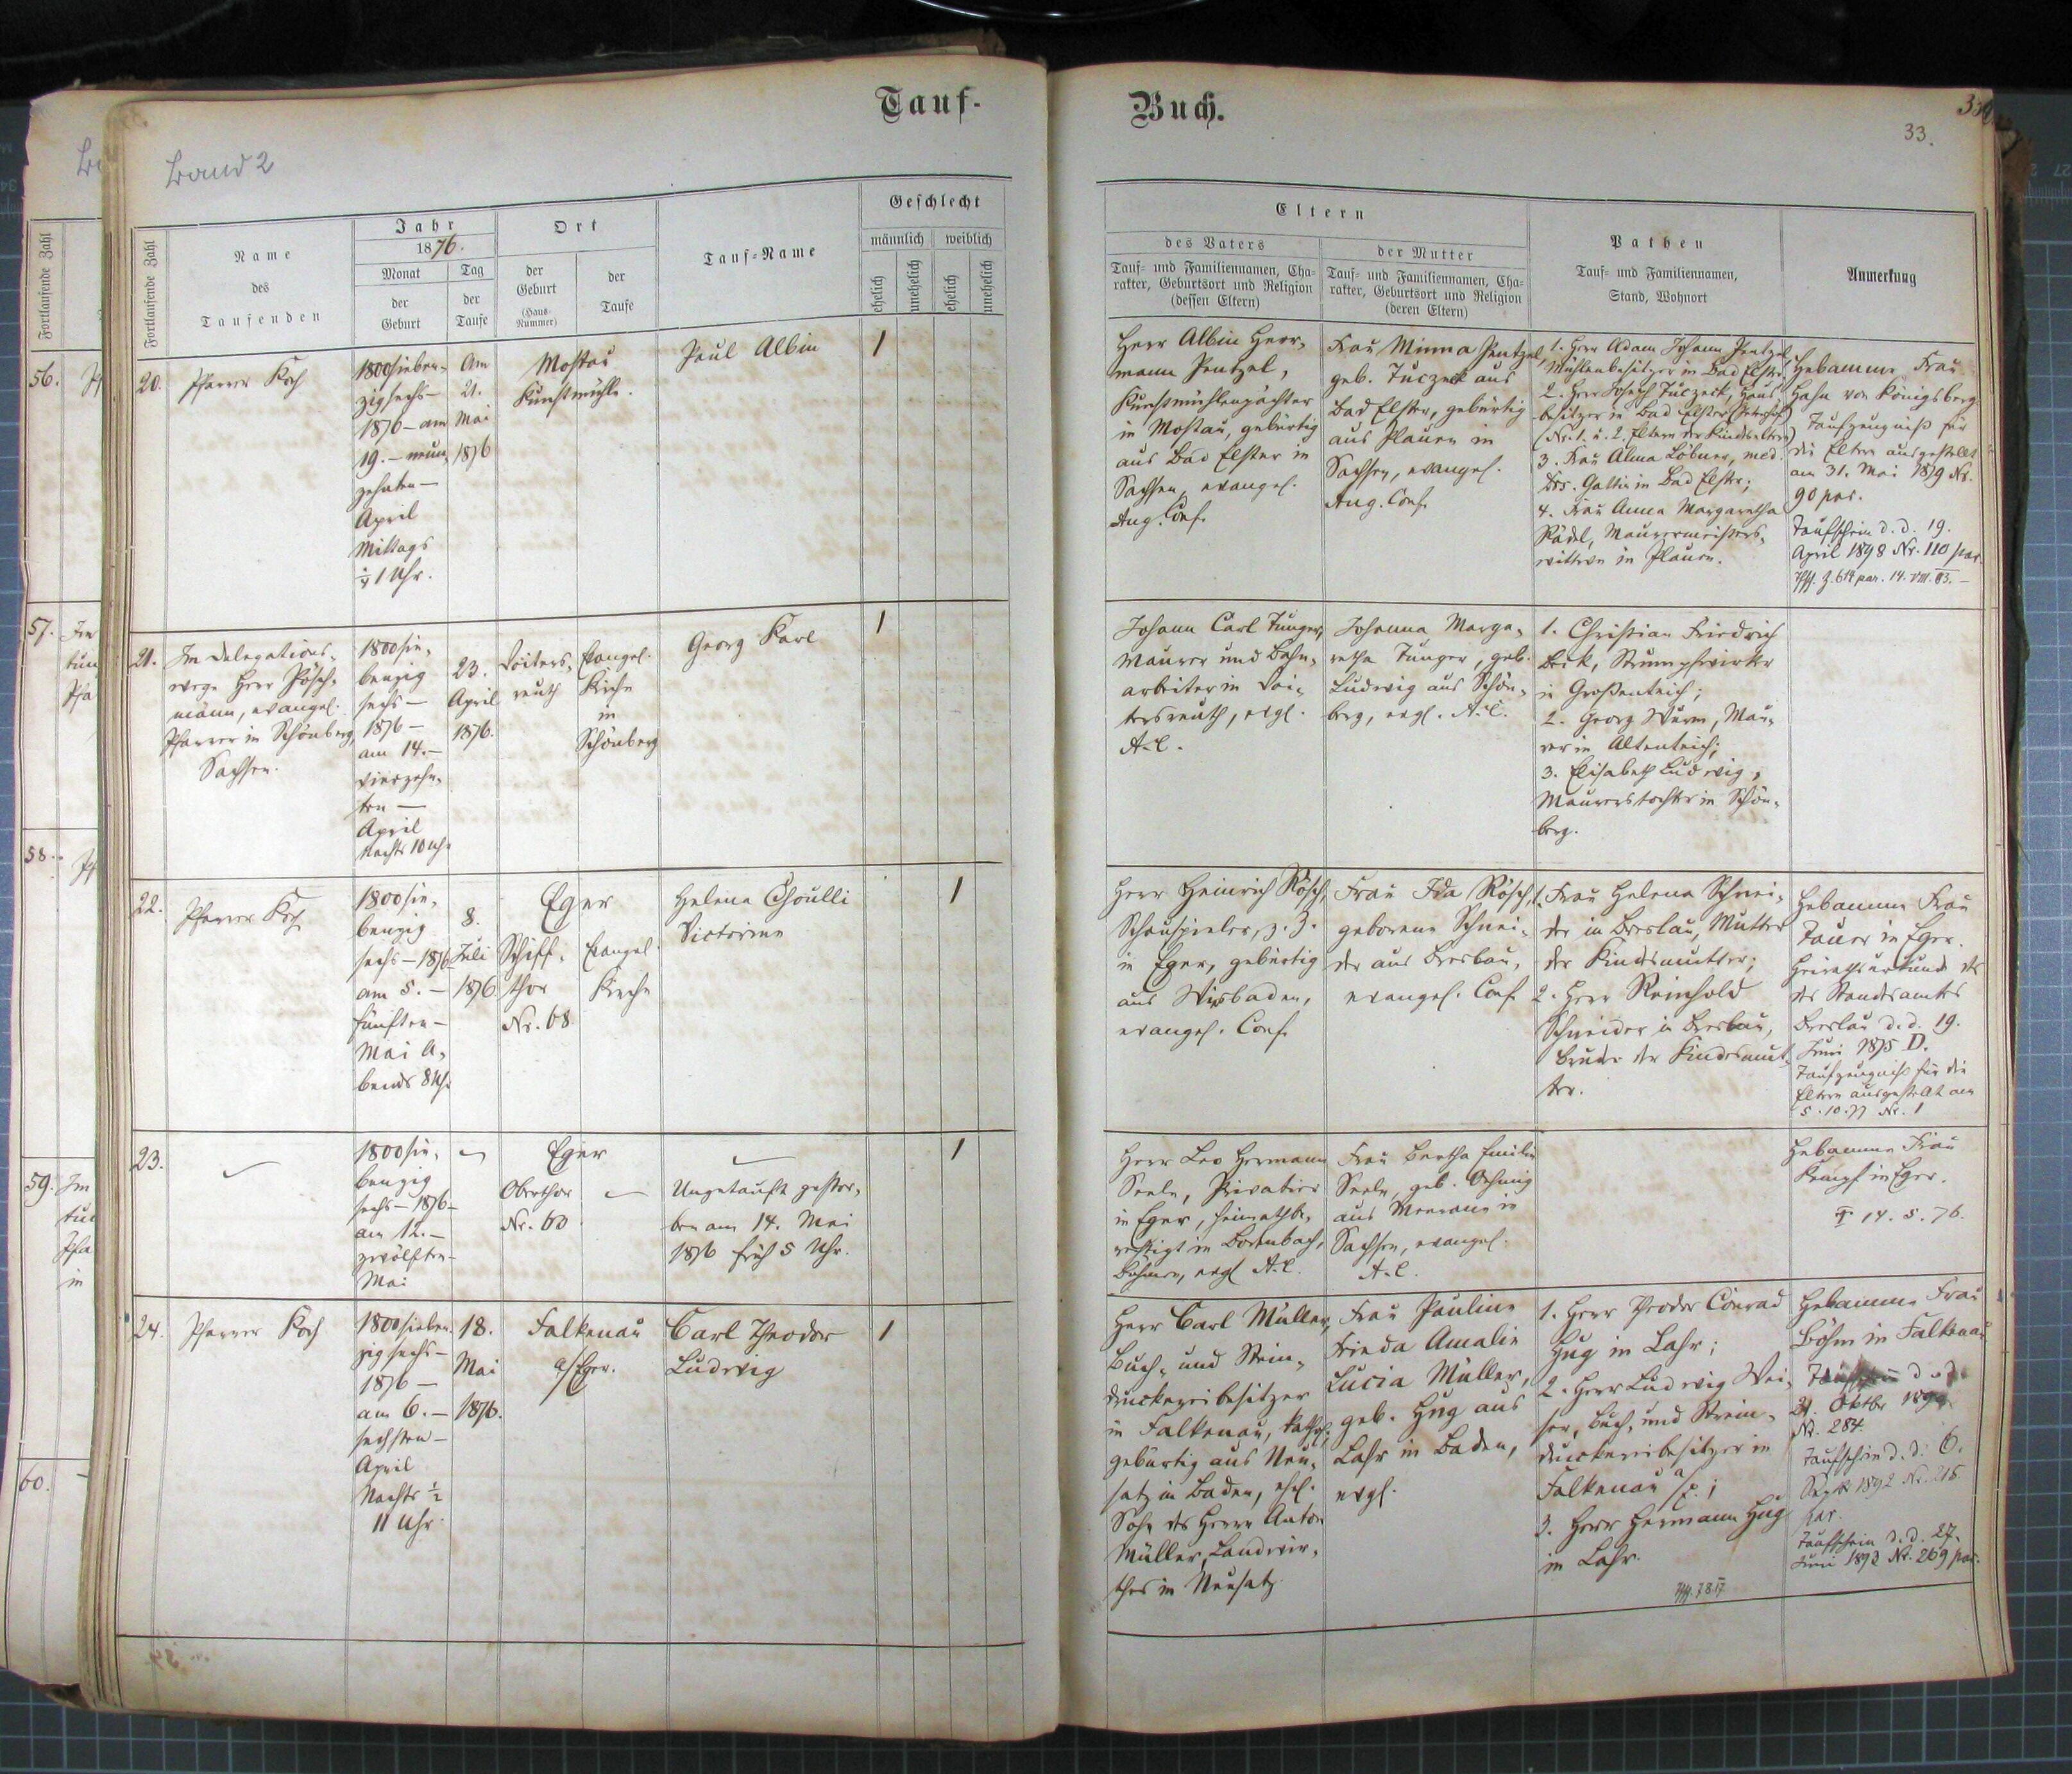 Tauf-
Buch.
33.
Band 2
Fortlaufende Zahl
Name
des
Taufenden
Jahr
1876.
Monat
der
Geburt
Tag
der
Taufe
Ort
der
Geburt
(Haus-
Nummer)
der
Taufe
Tauf-Name
Geschlecht
männlich
weiblich
ehelich
unehelich
ehelich
unehelich
Eltern
des Vaters
Tauf- und Familiennamen, Cha-
rakter, Geburtsort und Religion
(dessen Eltern)
der Mutter
Tauf- und Familiennamen, Cha-
rakter, Geburtsort und Religion
(deren Eltern)
Pathen
Tauf- und Familiennamen,
Stand, Wohnort
Anmerkung
20.
Pfarrer Koch
1800sieben-
zigsechs-
1876 - am
19. - neun-
zehnten -
April
Mittags
1 Uhr.
Am
21.
Mai
1876
Mostau
Kunstmühle.
Paul Albin
1
Herr Albin Herr-
mann Pentzel,
Kunstmühlenpächter
in Mostau, gebürtig
aus Bad Elster in
Sachsen, evangel.
Aug. Conf.
Frau Minna Pentzel,
geb. Tuczek aus
Bad Elster, gebürtig
aus Plauen in
Sachsen, evangel.
Aug. Conf.
1. Herr Adam Johann Pentzel,
Mühlenbesitzer in Bad Elster;
2. Herr Joseph Tuczek, Haus-
besitzer in Bad Elster
(Nr. 1. u. 2. Eltern der Kindseltern)
3. Frau Alma Löbner, med.
Drs. Gattin in Bad Elster;
4. Frau Anna Margaretha
Rödel, Maurermeisters-
wittwe in Plauen.
Hebamme Frau
Hahn von Königsberg
Taufzeugniß für
die Eltern ausgestellt
am 31. Mai 1879 Nr.
90 par.
Taufschein d. d. 19.
April 1898 Nr. 110 par.
21.
Im Delegations-
wege Herr Pösch-
mann, evangel.
Pfarrer in Schönberg,
Sachsen.
1800sie-
benzig
sechs -
1876 -
am 14. -
vierzehn-
ten -
April
Nachts 10 Uhr
23.
April
1876.
Voiters-
reuth
Evangel.
Kirche
in
Schönberg
Georg Karl
1
Johann Carl Tunger,
Maurer und Bahn-
arbeiter in Voi-
tersreuth, evgl.
A. C.
Johanna Marga-
retha Tunger, geb.
Ludwig aus Schön-
berg, evgl. A. C.
1. Christian Friedrich
Beck, Strumpfwirker
in Großenteich;
2. Georg Wurm, Mau-
rer in Altenteich;
3. Elisabeth Ludwig,
Maurerstochter in Schön-
berg.
22.
Pfarrer Koch
1800sie-
benzig
sechs - 1876
am 5. -
fünften -
Mai A-
bends 8 Uhr
8.
Juli
1876
Eger
Schiff-
thor
Nr. 68.
Evangel.
Kirche
Helene
Victorine
1
Herr Heinrich Rösch,
Schauspieler, z. Z.
in Eger, gebürtig
aus Wisbaden,
evangel. Conf.
Frau Ida Rösch,
geborene Schnei-
der aus Breslau,
evangel. Conf.
1. Frau Helena Schnei-
der in Breslau, Mutter
der Kindsmutter;
2. Herr Reinhold
Schneider in Breslau,
Bruder der Kindesmut-
ter.
Hebamme Frau
in Eger.
Heirathsurkunde des
des Standesamtes
Breslau d. d. 19.
Juni 1875 D.
Taufzeugniß für die
Eltern ausgestellt am
5. 10. 77 Nr. 1
23.
1800sie-
benzig
sechs - 1876 -
am 12. -
zwölften -
Mai
Eger
Oberthor
Nr. 60
Ungetauft gestor-
ben am 14. Mai
1876 früh 5 Uhr.
1
Herr Leo Hermann
Seele, Privatier
in Eger, heimathbe-
rechtigt in
Böhmen, evgl. A. C.
Frau Bertha Emilie
Seele, geb. Oehmig
aus Meerane in
Sachsen, evangel.
A. C.
Hebamme Frau
Kempf in Eger.
14. 5. 76.
24.
Pfarrer Koch
1800sieben-
zig sechs -
1876 -
am 6. -
sechsten -
April
Nachts ½
11 Uhr.
18.
Mai
1876.
Falkenau
a/Eger.
Carl Theodor
Ludwig
1
Herr Carl Müller,
Buch- und Stein-
druckereibesitzer
in Falkenau, kathol.
gebürtig aus Neu-
satz in Baden, ehel.
Sohn des Herrn Anton
Müller, Landwir-
thes in Neusatz
Frau Pauline
Frieda Amalie
Lucia Müller,
geb. Hug aus
Lahr in Baden,
evgl.
1. Herr Theodor Conrad
Hug in Lahr;
2. Herr Ludwig Wei-
ser, Buch- und Stein-
druckereibesitzer in
Falkenau a/E.;
3. Herr Hermann Hug
in Lahr.
Hebamme Frau
Böhm in Falkenau
Nr. 284.
Taufschein d. d. 6.
Sept 1892 Nr. 215
par.
Taufschein d. d. 27.
Juni 1893 Nr. 269 par.
56.
57.
58.
59.
60.